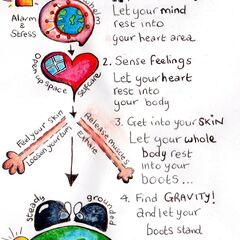 Let your mind
rest into
your heart area
Alarm
&
Stress
2. Sense Feelings
Let your heart
rest into
your body
Open up space
3. Get into your SKIN
Let your whole
body rest
into your
boots...
Feel your Skin
Loosen your
Release muscles
Exhale
steady
grounded
4. Find GRAVITY!
and let your
boots stand